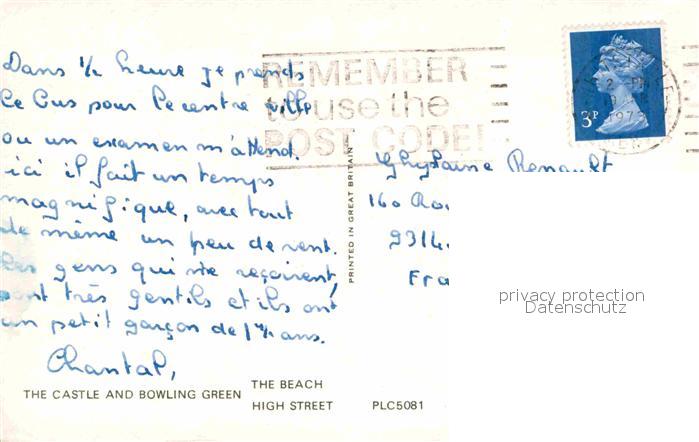 Dans 1/2 heure je prends
le bus pour le centre ville
ou un examen m'attend.
ici il fait un temps
magnifique, avec tout
de même un peu de vent.
Les gens qui me reçoivent,
sont très gentils et ils ont
un petit garçon de 1 1/2 ans.
Chantal,
REMEMBER
to use the
POST CODE!
3P
1973
Ghyslaine Renault
160 Ro
9314
Fra
PRINTED IN GREAT BRITAIN
privacy protection
Datenschutz
THE CASTLE AND BOWLING GREEN
THE BEACH
HIGH STREET
PLC5081